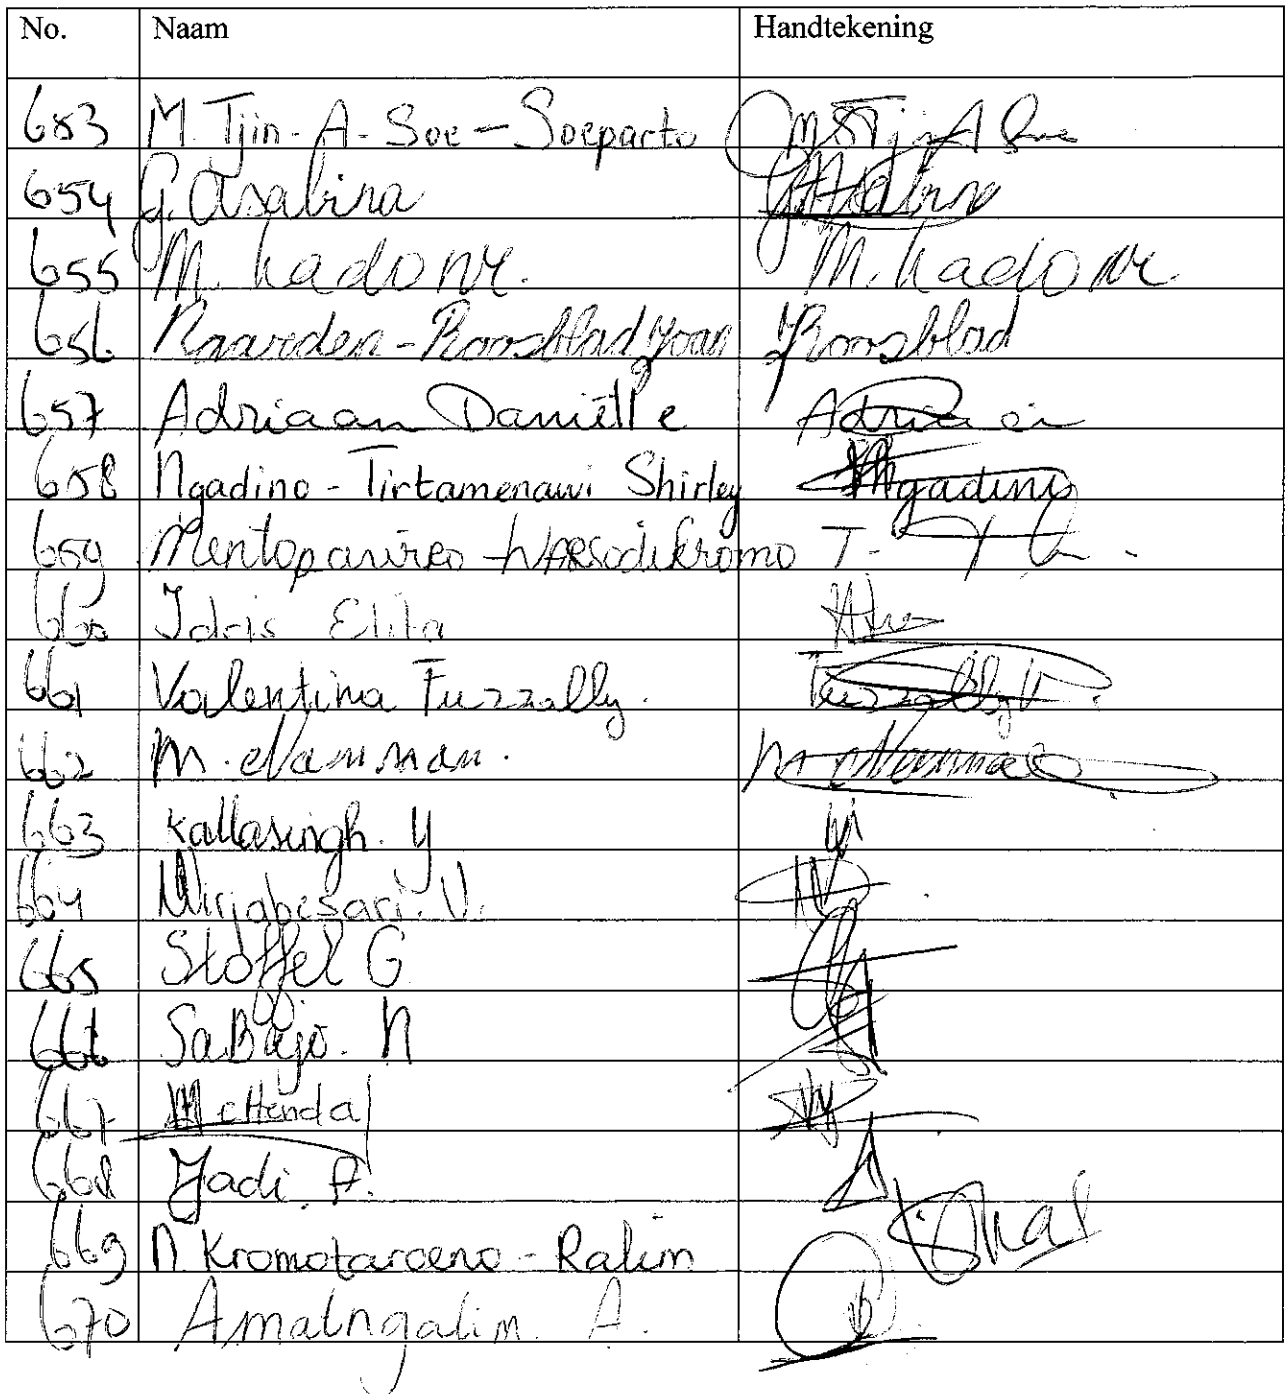 No. Naam Handtekening
653 M. Tjin-A-Soe-Soeparto M S Tjin A Soe
654 G. Asabina
655 M. Kadonk. M. Kadonk
656 Naarden-Roosblad Joan JRoosblad
657 Adriaan Daniëlle Adriaan
658 Ngadino-Tirtamenawi Shirley Ngadino
659 Mentopawiro-Warsodikromo T.
660 Idris Elita
661 Valentina Fuzzally. Fuzzally V.
662 M.
663 Kallasingh. Y
664 Wirjabesari. V.
665 Stoffel G
666 Sabajo. N
667
668 Jadi. A.
669 N Kromotaroeno-Ralim
670 Amatngalim. A.